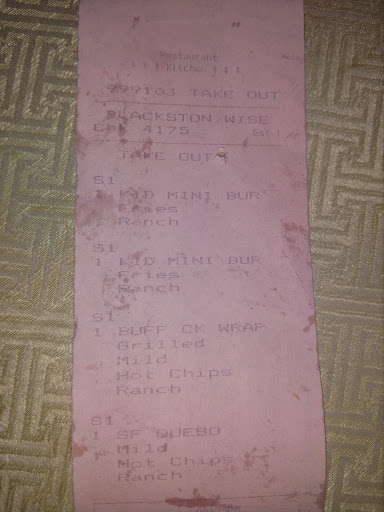 Restaurant
Kitchen
999103 TAKE OUT
BLACKSTON WISE
Chk 4175
TAKE OUT
S1
1 KID MINI BUR
Fries
Ranch
S1
1 KID MINI BUR
Fries
Ranch
S1
1 BUFF CK WRAP
Grilled
Mild
Hot Chips
Ranch
S1
1 SF QUEBD
Mild
Hot Chips
Ranch